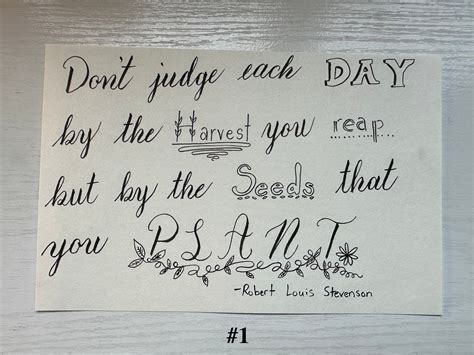 Don't judge each DAY
by the Harvest you reap
but by the Seeds that
you PLANT
-Robert Louis Stevenson
#1